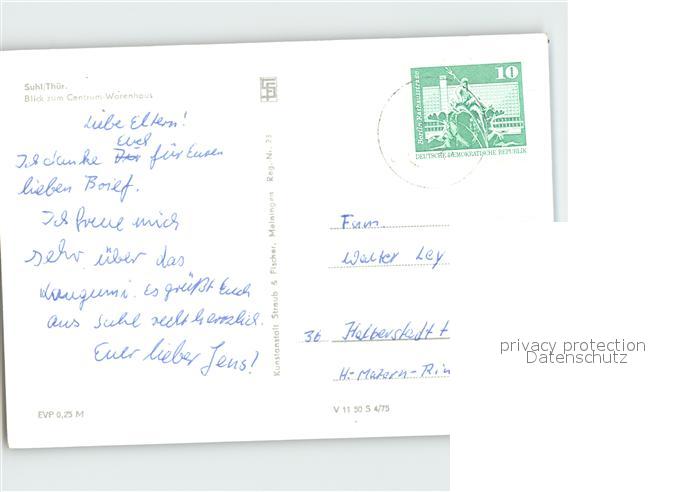 Suhl/Thür.
Blick zum Centrum-Warenhaus
Liebe Eltern!
Euch
Ich danke für Euren
lieben Brief.
Ich freue mich
sehr über das
Kaugumi. Es grüßt Euch
aus Suhl recht herzlich.
Euer lieber Jens!
EVP 0,25 M
Kunstanstalt Straub & Fischer, Meiningen Reg.-Nr. 73
10
Berlin, Rathausstraße
DEUTSCHE DEMOKRATISCHE REPUBLIK
Fam.
Walter Ley
36 Halberstadt
H.-Matern-Rin
V 11 50 S 4/75
privacy protection
Datenschutz